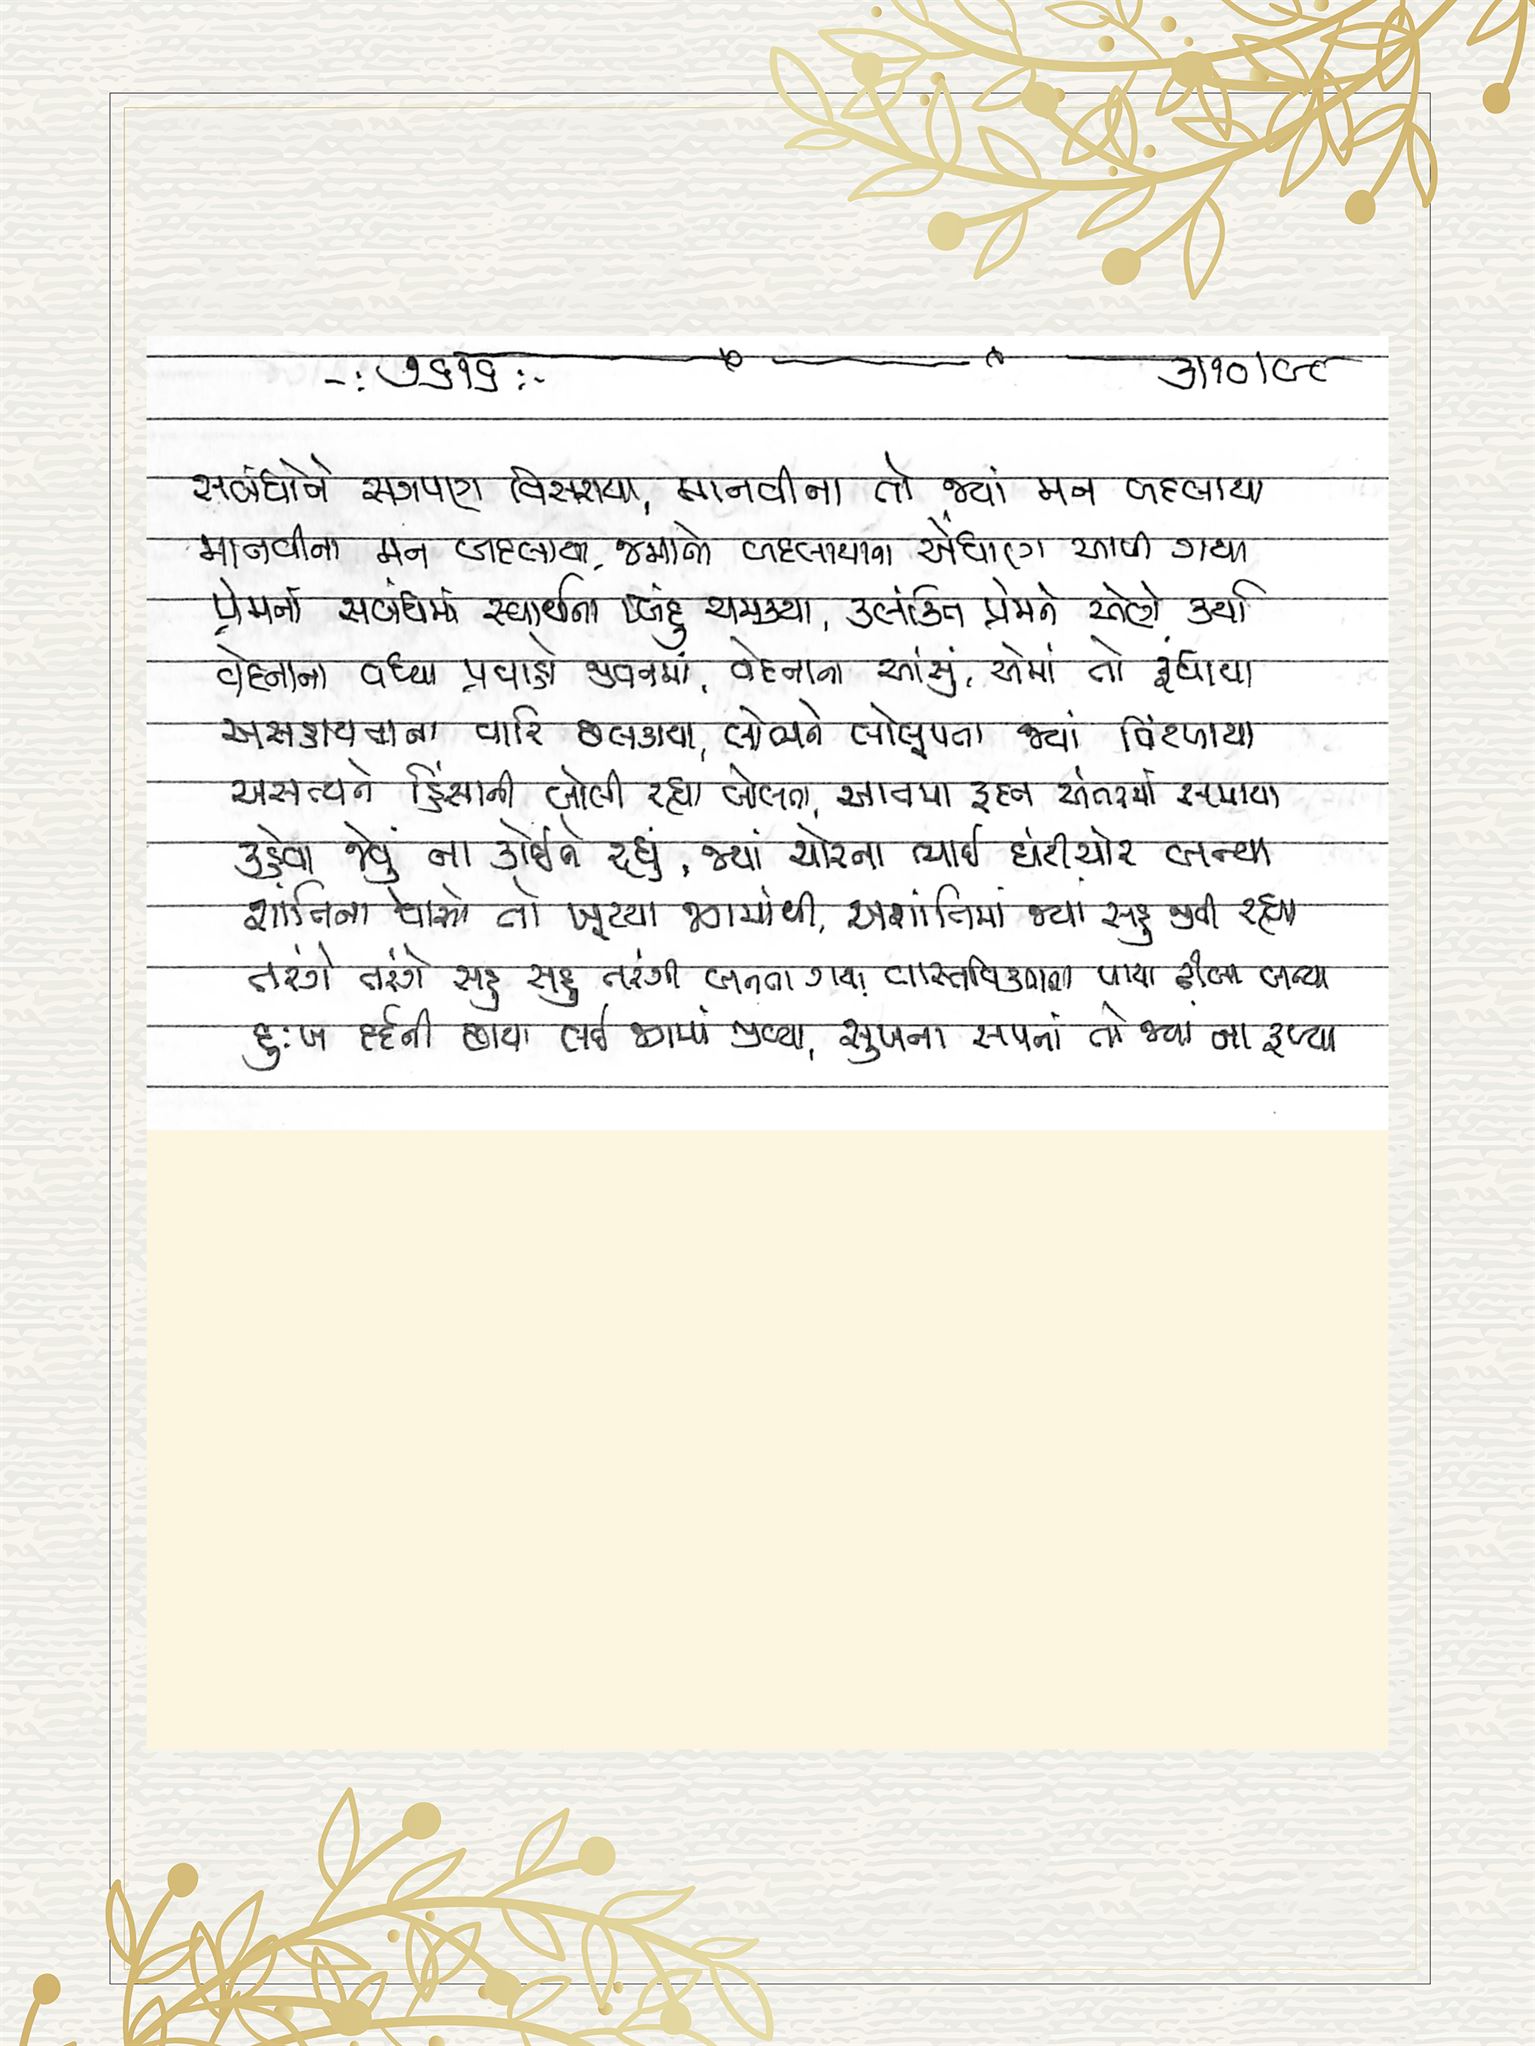 -: ૭૬૧૬ :-
૩/૧૦/૯૮
સબંધોને સગપણ વિસરાયા, માનવીના તો જ્યાં મન બદલાયા
માનવીના મન બદલાયા, જમાનો બદલાયાના એંધાણ આપી ગયા
પ્રેમના સબંધમાં સ્વાર્થના બિંદુ ચમક્યા, કલંકિત પ્રેમને એણે કર્યા
વેદનાના વધ્યા પ્રવાહો જીવનમાં, વેદનાના આંસું, એમાં તો રૂંધાયા
અસહાયતાના વારિ છલકાયા, લોભને લોલૂપતા જ્યાં વિંટળાયા
અસત્યને હિંસાની બોલી રહ્યા બોલતા, આતમા રૂદન અંતરમાં સમાયા
કહેવા જેવું ના કોઈને રહ્યું, જ્યાં ચોરના ભાઈ ઘંટીચોર બન્યા
શાંતિના શ્વાસો તો ખૂટયા જગમાંથી, અશાંતિમાં જ્યાં સહુ જીવી રહ્યા
તરંગે તરંગે સહુ સહુ તરંગી બનતા ગયા વાસ્તવિકતાના પાયા ઢીલા બન્યા
દુઃખ દર્દની છાયા લઈ જગમાં જીવ્યા, સુખના સપનાં તો જ્યાં ના રૂચ્યા